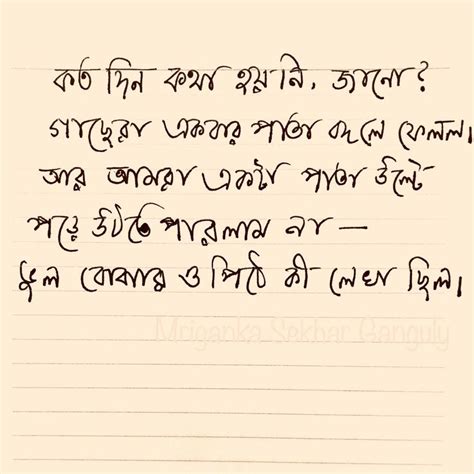 কত দিন কথা হয়নি, জানো?
গাছেরা একবার পাতা বদলে ফেলল।
আর আমরা একটা পাতা উল্টে
পড়ে উঠতে পারলাম না —
ভুল বোঝার ও পিঠে কী লেখা ছিল।
Mriganka Sekhar Ganguly